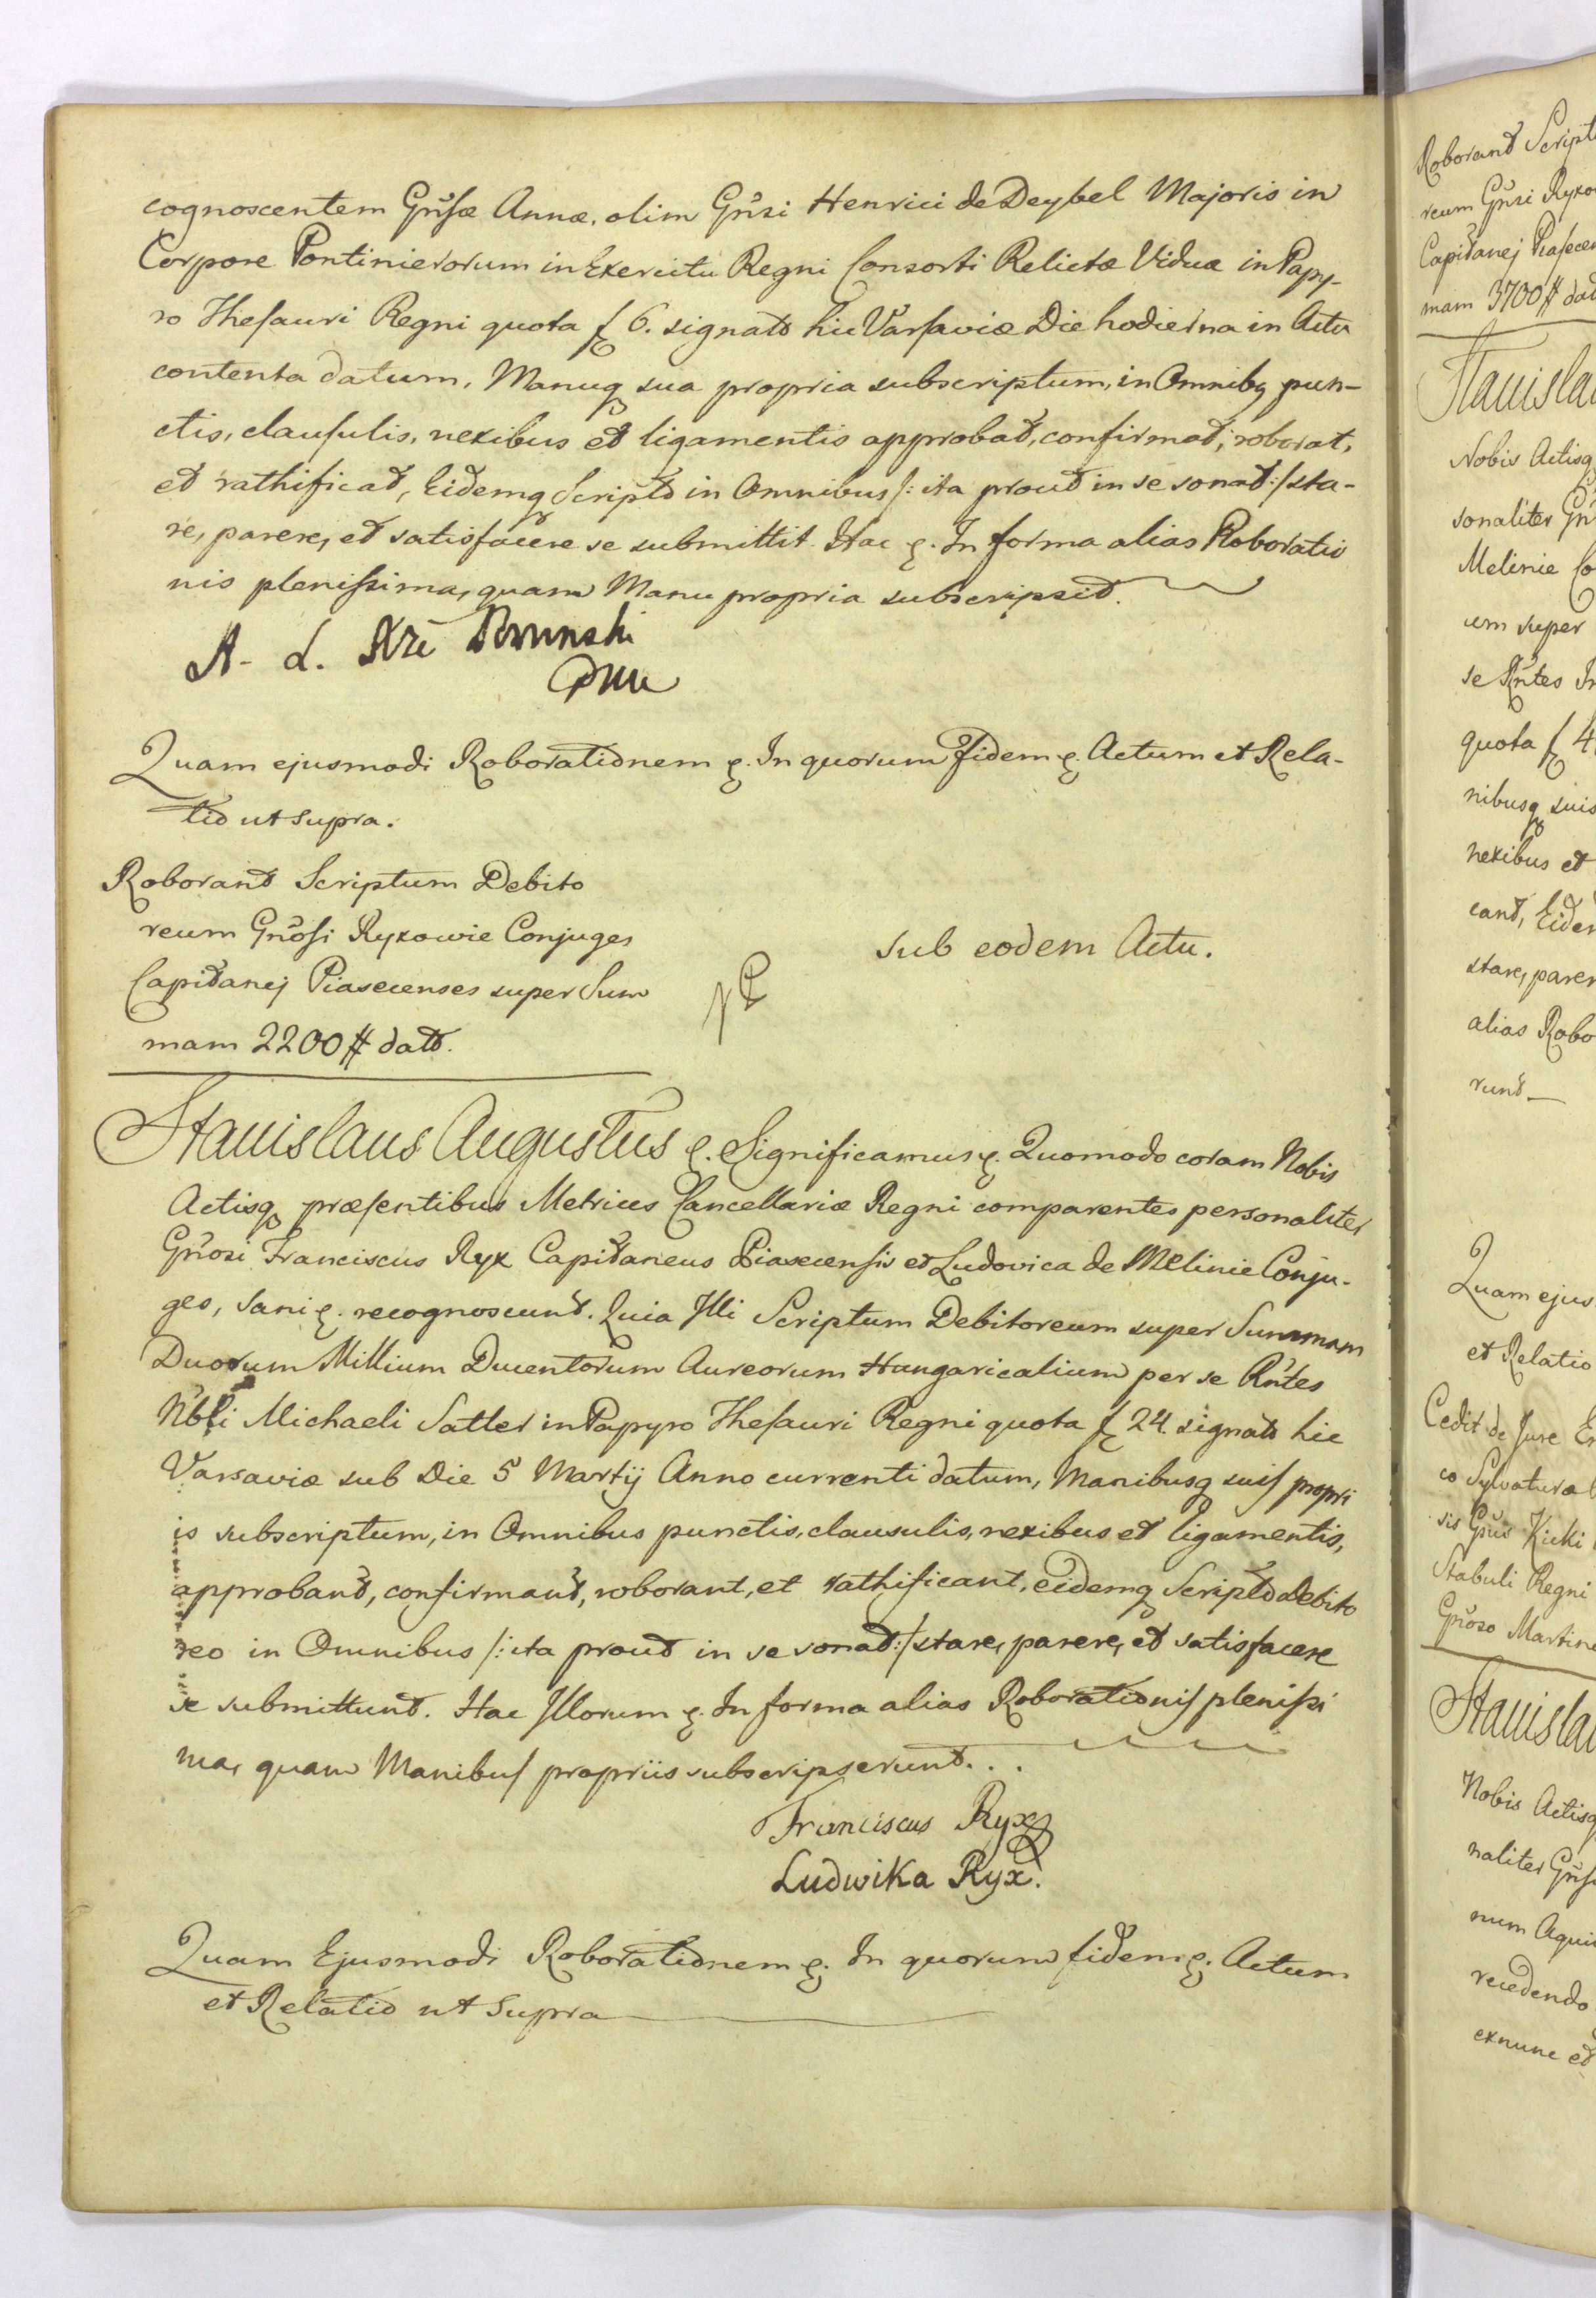 cognoscentem Gnsæ Annæ, olim Gnsi Henrici de Deybel Majoris in
Corpore Pontinierorum in Exercitu Regni Consorti Relictæ Viduæ in Papy-
ro Thesauri Regni quota f 6. signato hic Varsaviæ Die hodierna in Actu
contenta datum, Manuq sua propria subscriptum, in Omnibq pun-
ctis, clausulis, nexibus et ligamentis approbat, confirmat, roborat,
et rathificat, Eidemq Scripto in Omnibus /: ita prout in se sonat :/ sta-
re, parere, et satisfacere se submittit. Hac e. In forma alias Roboratio
nis plenissima, quam Manu propria subscripsit.
A. L.
Quam ejusmodi Roborationem e. In quorum Fidem e. Actum et Rela-
tio ut supra.
Roborant Scriptum Debito
reum Gnosi Ryxowie Conjuges
Capitanej Piasecenses super Sum
mam 2200 # dato.
Sub eodem Actu.
Stanislaus Augustus e. Significamus e. Quomodo coram Nobis
Actisq præsentibus Metrices Cancellariæ Regni comparentes personaliter
Gnosi Franciscus Ryx Capitaneus Piasecensis et Ludovica de Melinie Conju-
ges, sani e. recognoscunt. Quia Illi Scriptum Debitoreum super Summam
Duorum Millium Ducentorum Aureorum Hungaricalium per se Rntes
Nbli Michaeli Satler in Papyro Thesauri Regni quota f 24. signato hic
Varsaviæ sub Die 5 Martij Anno currenti datum, Manibusq suis propri
is subscriptum, in Omnibus punctis, clausulis, nexibus et ligamentis,
approbant, confirmant, roborant, et rathificant, eidemq Scripto Debito
reo in Omnibus /: ita prout in se sonat :/ stare, parere, et satisfacere
se submittunt. Hac Illorum e. In forma alias Roborationis plenissi
ma, quam Manibus propriis subscripserunt. . .
Franciscus Ryx
Ludwika Ryx.
Quam Ejusmodi Roborationem e. In quorum fidem e. Actum
et Relatio ut Supra
Roborant Script
reum Gnsi Ryxo
Capitanej Piasecen
mam 3700 # dat
Stanisla
Nobis Actisq
sonaliter Gn
Melinie Co
um super
se Rntes In
quota f 4
nibusq suis
nexibus et
cant, Eidem
stare, parer
alias Robo
runt
Quam ejus
et Relatio
Cedit de Jure
co Sylvaturæ
sis Gsus Kicki
Stabuli Regni
Gnoso Martin
Stanisla
Nobis Actisq
naliter Gns
num Aqui
recedendo
exnunc et